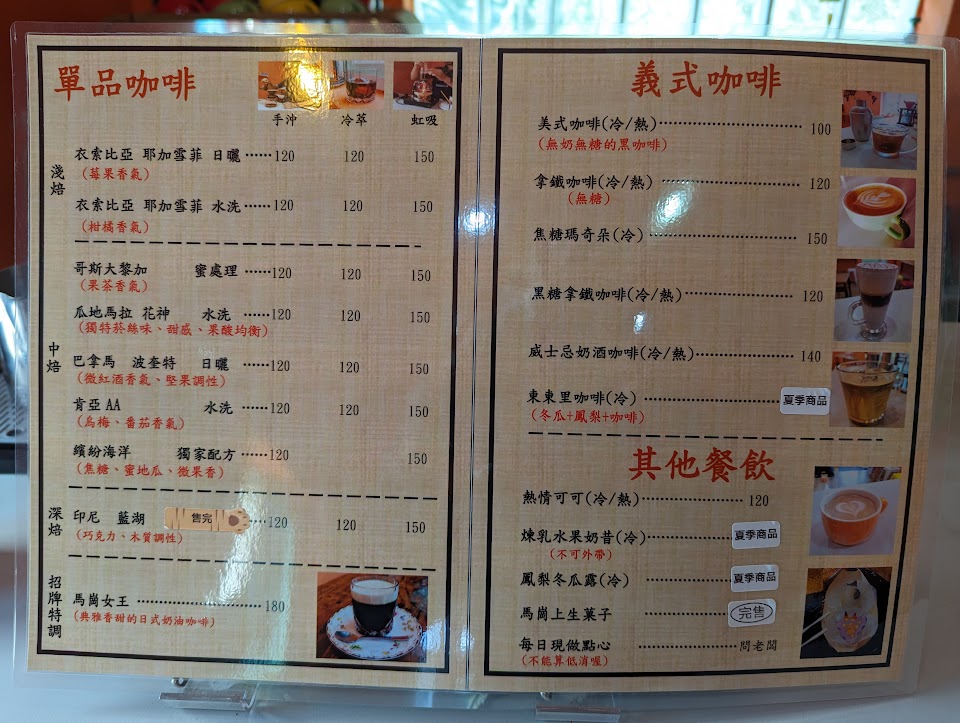 單品咖啡
手沖 冷萃 虹吸
淺焙
衣索比亞 耶加雪菲 日曬 ……120 120 150
(莓果香氣)
衣索比亞 耶加雪菲 水洗……120 120 150
(柑橘香氣)
中焙
哥斯大黎加 蜜處理 ……120 120 150
(果茶香氣)
瓜地馬拉 花神 水洗 ……120 120 150
(獨特菸絲味、甜感、果酸均衡)
巴拿馬 波奎特 日曬 ……120 120 150
(微紅酒香氣、堅果調性)
肯亞AA 水洗 ……120 120 150
(烏梅、番茄香氣)
繽紛海洋 獨家配方……120 150
(焦糖、蜜地瓜、微果香)
深焙
印尼 藍湖 售完 …120 120 150
(巧克力、木質調性)
招牌特調
馬崗女王 ………………180
(典雅香甜的日式奶油咖啡)
義式咖啡
美式咖啡(冷/熱)……………… 100
(無奶無糖的黑咖啡)
拿鐵咖啡(冷/熱) ……………… 120
(無糖)
焦糖瑪奇朵(冷)……………… 150
黑糖拿鐵咖啡(冷/熱)…………… 120
威士忌奶酒咖啡(冷/熱)…………… 140
東東里咖啡(冷) …………… 夏季商品
(冬瓜+鳳梨+咖啡)
其他餐飲
熱情可可(冷/熱)…………… 120
煉乳水果奶昔(冷)………… 夏季商品
(不可外帶)
鳳梨冬瓜露(冷) ………… 夏季商品
馬崗上生菓子 ………… 完售
每日現做點心 ……………問老闆
(不能算低消喔)